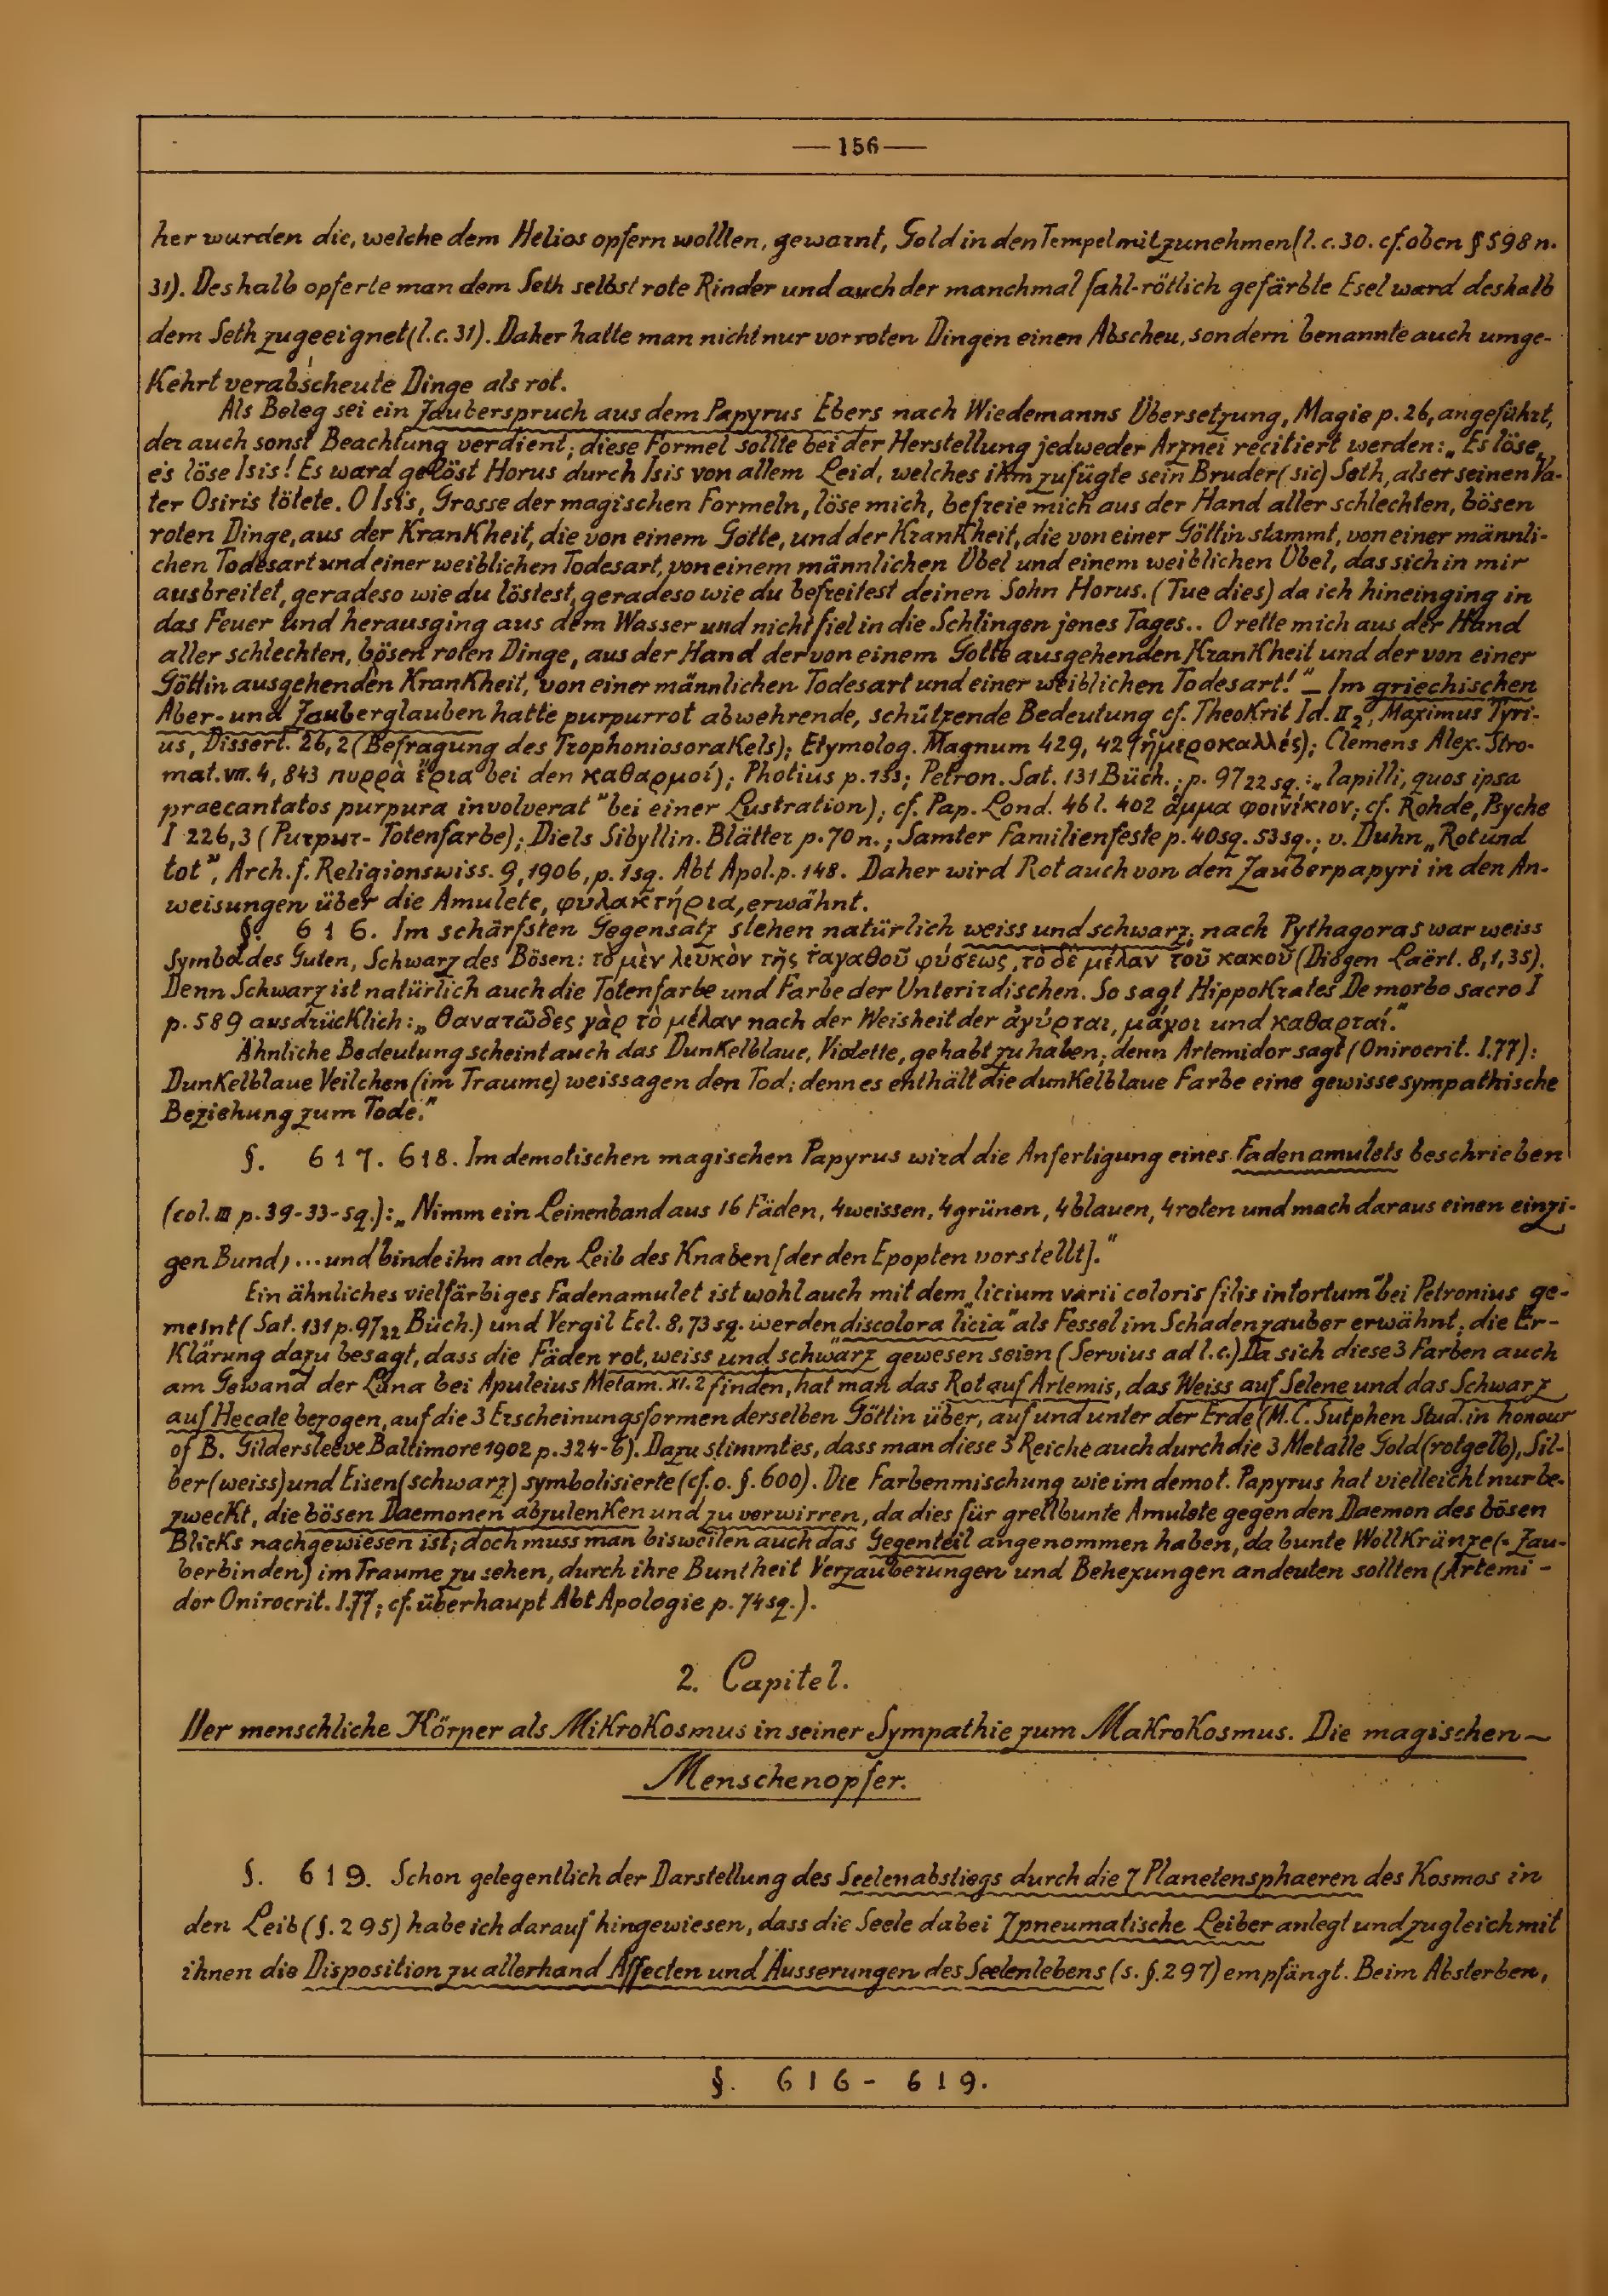 — 156 —
her wurden die, welche dem Helios opfern wollten, gewarnt, Gold in den Tempel mitzunehmen (l. c. 30. cf. oben § 598 n.
31). Deshalb opferte man dem Seth selbst rote Rinder und auch der manchmal fahl-rötlich gefärbte Esel ward deshalb
dem Seth zugeeignet (l. c. 31). Daher hatte man nicht nur vor roten Dingen einen Abscheu, sondern benannte auch umge-
kehrt verabscheute Dinge als rot.
Als Beleg sei ein Zauberspruch aus dem Papyrus Ebers nach Wiedemanns Übersetzung, Magie p. 26, angeführt,
der auch sonst Beachtung verdient; diese Formel sollte bei der Herstellung jedweder Arznei recitiert werden: „Es löse,
es löse Isis! Es ward gelöst Horus durch Isis von allem Leid, welches ihm zufügte sein Bruder (sic) Seth, als er seinen Va-
ter Osiris tötete. O Isis, Grosse der magischen Formeln, löse mich, befreie mich aus der Hand aller schlechten, bösen
roten Dinge, aus der Krankheit, die von einem Gotte, und der Krankheit, die von einer Göttin stammt, von einer männli-
chen Todesart und einer weiblichen Todesart, von einem männlichen Übel und einem weiblichen Übel, das sich in mir
ausbreitet, geradeso wie du löstest, geradeso wie du befreitest deinen Sohn Horus. (Tue dies) da ich hineinging in
das Feuer und herausging aus dem Wasser und nicht fiel in die Schlingen jenes Tages.. O rette mich aus der Hand
aller schlechten, bösen roten Dinge, aus der Hand der von einem Gotte ausgehenden Krankheit und der von einer
Göttin ausgehenden Krankheit, von einer männlichen Todesart und einer weiblichen Todesart!" — Im griechischen
Aber- und Zauberglauben hatte purpurrot abwehrende, schützende Bedeutung cf. Theokrit Id. II 2, Maximus Tyri-
us, Dissert. 26, 2 (Befragung des Trophoniosorakels); Etymolog. Magnum 429, 42 (ἡμεροκαλλές); Clemens Alex. Stro-
mat. VII. 4, 843 πυρρὰ ἔρια bei den καθαρμοί); Photius p. 133; Petron. Sat. 131 Büch.; p. 97 22 sq.: „lapilli, quos ipsa
praecantatos purpura involverat" bei einer Lustration); cf. Pap. Lond. 46 l. 402 ἅμμα φοινίκιον; cf. Rohde, Psyche
I 226, 3 (Purpur- Totenfarbe); Diels Sibyllin. Blätter p. 70 n.; Samter Familienfeste p. 40 sq. 53 sq.; v. Duhn „Rot und
tot", Arch. f. Religionswiss. 9, 1906, p. 1 sq. Abt Apol. p. 148. Daher wird Rot auch von den Zauberpapyri in den An-
weisungen über die Amulete, φυλακτήρια, erwähnt.
§. 616. Im schärfsten Gegensatz stehen natürlich weiss und schwarz; nach Pythagoras war weiss
Symbol des Guten, Schwarz des Bösen: τὸ μὲν λευκὸν τῆς τἀγαθοῦ φύσεως, τὸ δὲ μέλαν τοῦ κακοῦ (Diogen Laërt. 8, 1, 35).
Denn Schwarz ist natürlich auch die Totenfarbe und Farbe der Unterirdischen. So sagt Hippokrates De morbo sacro I
p. 589 ausdrücklich: „θανατῶδες γὰρ τὸ μέλαν nach der Weisheit der ἀγύρται, μάγοι und καθαρταί."
Ähnliche Bedeutung scheint auch das Dunkelblaue, Violette, gehabt zu haben; denn Artemidor sagt (Onirocrit. I. 77):
Dunkelblaue Veilchen (im Traume) weissagen den Tod; denn es enthält die dunkelblaue Farbe eine gewisse sympathische
Beziehung zum Tode."
§. 617. 618. Im demotischen magischen Papyrus wird die Anfertigung eines Fadenamulets beschrieben
(col. III p. 39-33-sq.): „Nimm ein Leinenband aus 16 Fäden, 4 weissen, 4 grünen, 4 blauen, 4 roten und mach daraus einen einzi-
gen Bund, ... und binde ihn an den Leib des Knaben [der den Epopten vorstellt]."
Ein ähnliches vielfärbiges Fadenamulet ist wohl auch mit dem „licium varii coloris filis intortum" bei Petronius ge-
meint (Sat. 131 p. 97 22 Büch.) und Vergil Ecl. 8, 73 sq. werden „discolora licia" als Fessel im Schadenzauber erwähnt; die Er-
klärung dazu besagt, dass die Fäden rot, weiss und schwarz gewesen seien (Servius ad l. c.) Da sich diese 3 Farben auch
am Gewand der Luna bei Apuleius Metam. XI. 2 finden, hat man das Rot auf Artemis, das Weiss auf Selene und das Schwarz
auf Hecate bezogen, auf die 3 Erscheinungsformen derselben Göttin über, auf und unter der Erde (M. C. Sutphen Stud. in honour
of B. Gildersleeve Baltimore 1902 p. 324-6). Dazu stimmt es, dass man diese 3 Reiche auch durch die 3 Metalle Gold (rotgelb), Sil-
ber (weiss) und Eisen (schwarz) symbolisierte (cf. o. §. 600). Die Farbenmischung wie im demot. Papyrus hat vielleicht nur be-
zweckt, die bösen Daemonen abzulenken und zu verwirren, da dies für grellbunte Amulete gegen den Daemon des bösen
Blicks nachgewiesen ist; doch muss man bisweilen auch das Gegenteil angenommen haben, da bunte Wollkränze (= Zau-
berbinden) im Traume zu sehen, durch ihre Buntheit Verzauberungen und Behexungen andeuten sollten (Artemi-
dor Onirocrit. I. 77; cf. überhaupt Abt Apologie p. 74 sq.).
2. Capitel.
Der menschliche Körper als Mikrokosmus in seiner Sympathie zum Makrokosmus. Die magischen —
Menschenopfer.
§. 619. Schon gelegentlich der Darstellung des Seelenabstiegs durch die 7 Planetensphaeren des Kosmos in
den Leib (§. 295) habe ich darauf hingewiesen, dass die Seele dabei 7 pneumatische Leiber anlegt und zugleich mit
ihnen die Disposition zu allerhand Affecten und Äusserungen des Seelenlebens (s. §. 297) empfängt. Beim Absterben,
§. 616 - 619.